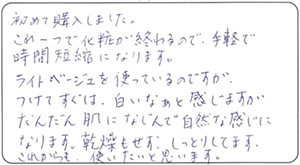 初めて購入しました。
これ一つで化粧が終わるので、手軽で
時間短縮になります。
ライトベージュを使っているのですが、
つけてすぐは、白いなあと感じますが
だんだん肌になじんで自然な感じに
なります。乾燥もせず、しっとりしてます。
これからも、使いたいと思います。